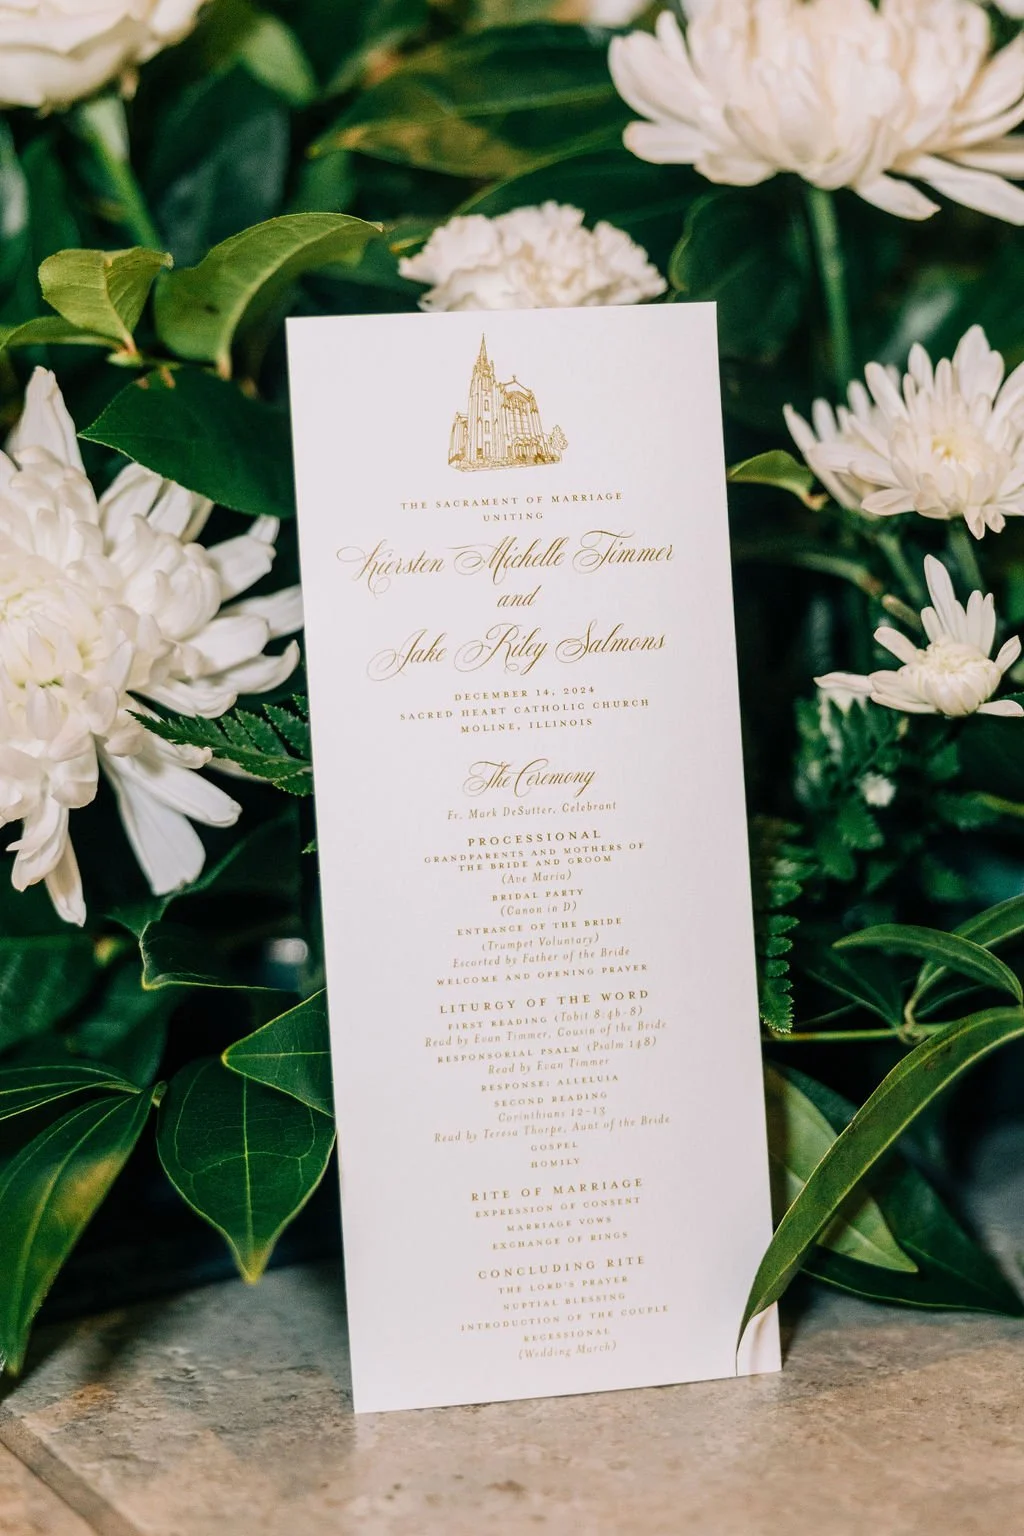 THE SACRAMENT OF MARRIAGE
UNITING
Kiersten Michelle Timmer
and
Jake Riley Salmons
DECEMBER 14, 2024
SACRED HEART CATHOLIC CHURCH
MOLINE, ILLINOIS
The Ceremony
Fr. Mark DeSutter, Celebrant
PROCESSIONAL
GRANDPARENTS AND MOTHERS OF
THE BRIDE AND GROOM
(Ave Maria)
BRIDAL PARTY
(Canon in D)
ENTRANCE OF THE BRIDE
(Trumpet Voluntary)
Escorted by Father of the Bride
WELCOME AND OPENING PRAYER
LITURGY OF THE WORD
FIRST READING (Tobit 8:4b-8)
Read by Evan Timmer, Cousin of the Bride
RESPONSORIAL PSALM (Psalm 148)
Read by Evan Timmer
RESPONSE: ALLELUIA
SECOND READING
Corinthians 12-13
Read by Teresa Thorpe, Aunt of the Bride
GOSPEL
HOMILY
RITE OF MARRIAGE
EXPRESSION OF CONSENT
MARRIAGE VOWS
EXCHANGE OF RINGS
CONCLUDING RITE
THE LORD'S PRAYER
NUPTIAL BLESSING
INTRODUCTION OF THE COUPLE
RECESSIONAL
(Wedding March)